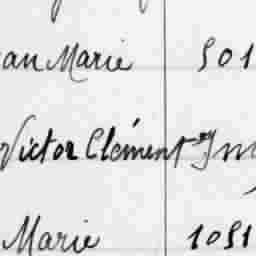 an Marie 501
Victor Clément
Marie 1051